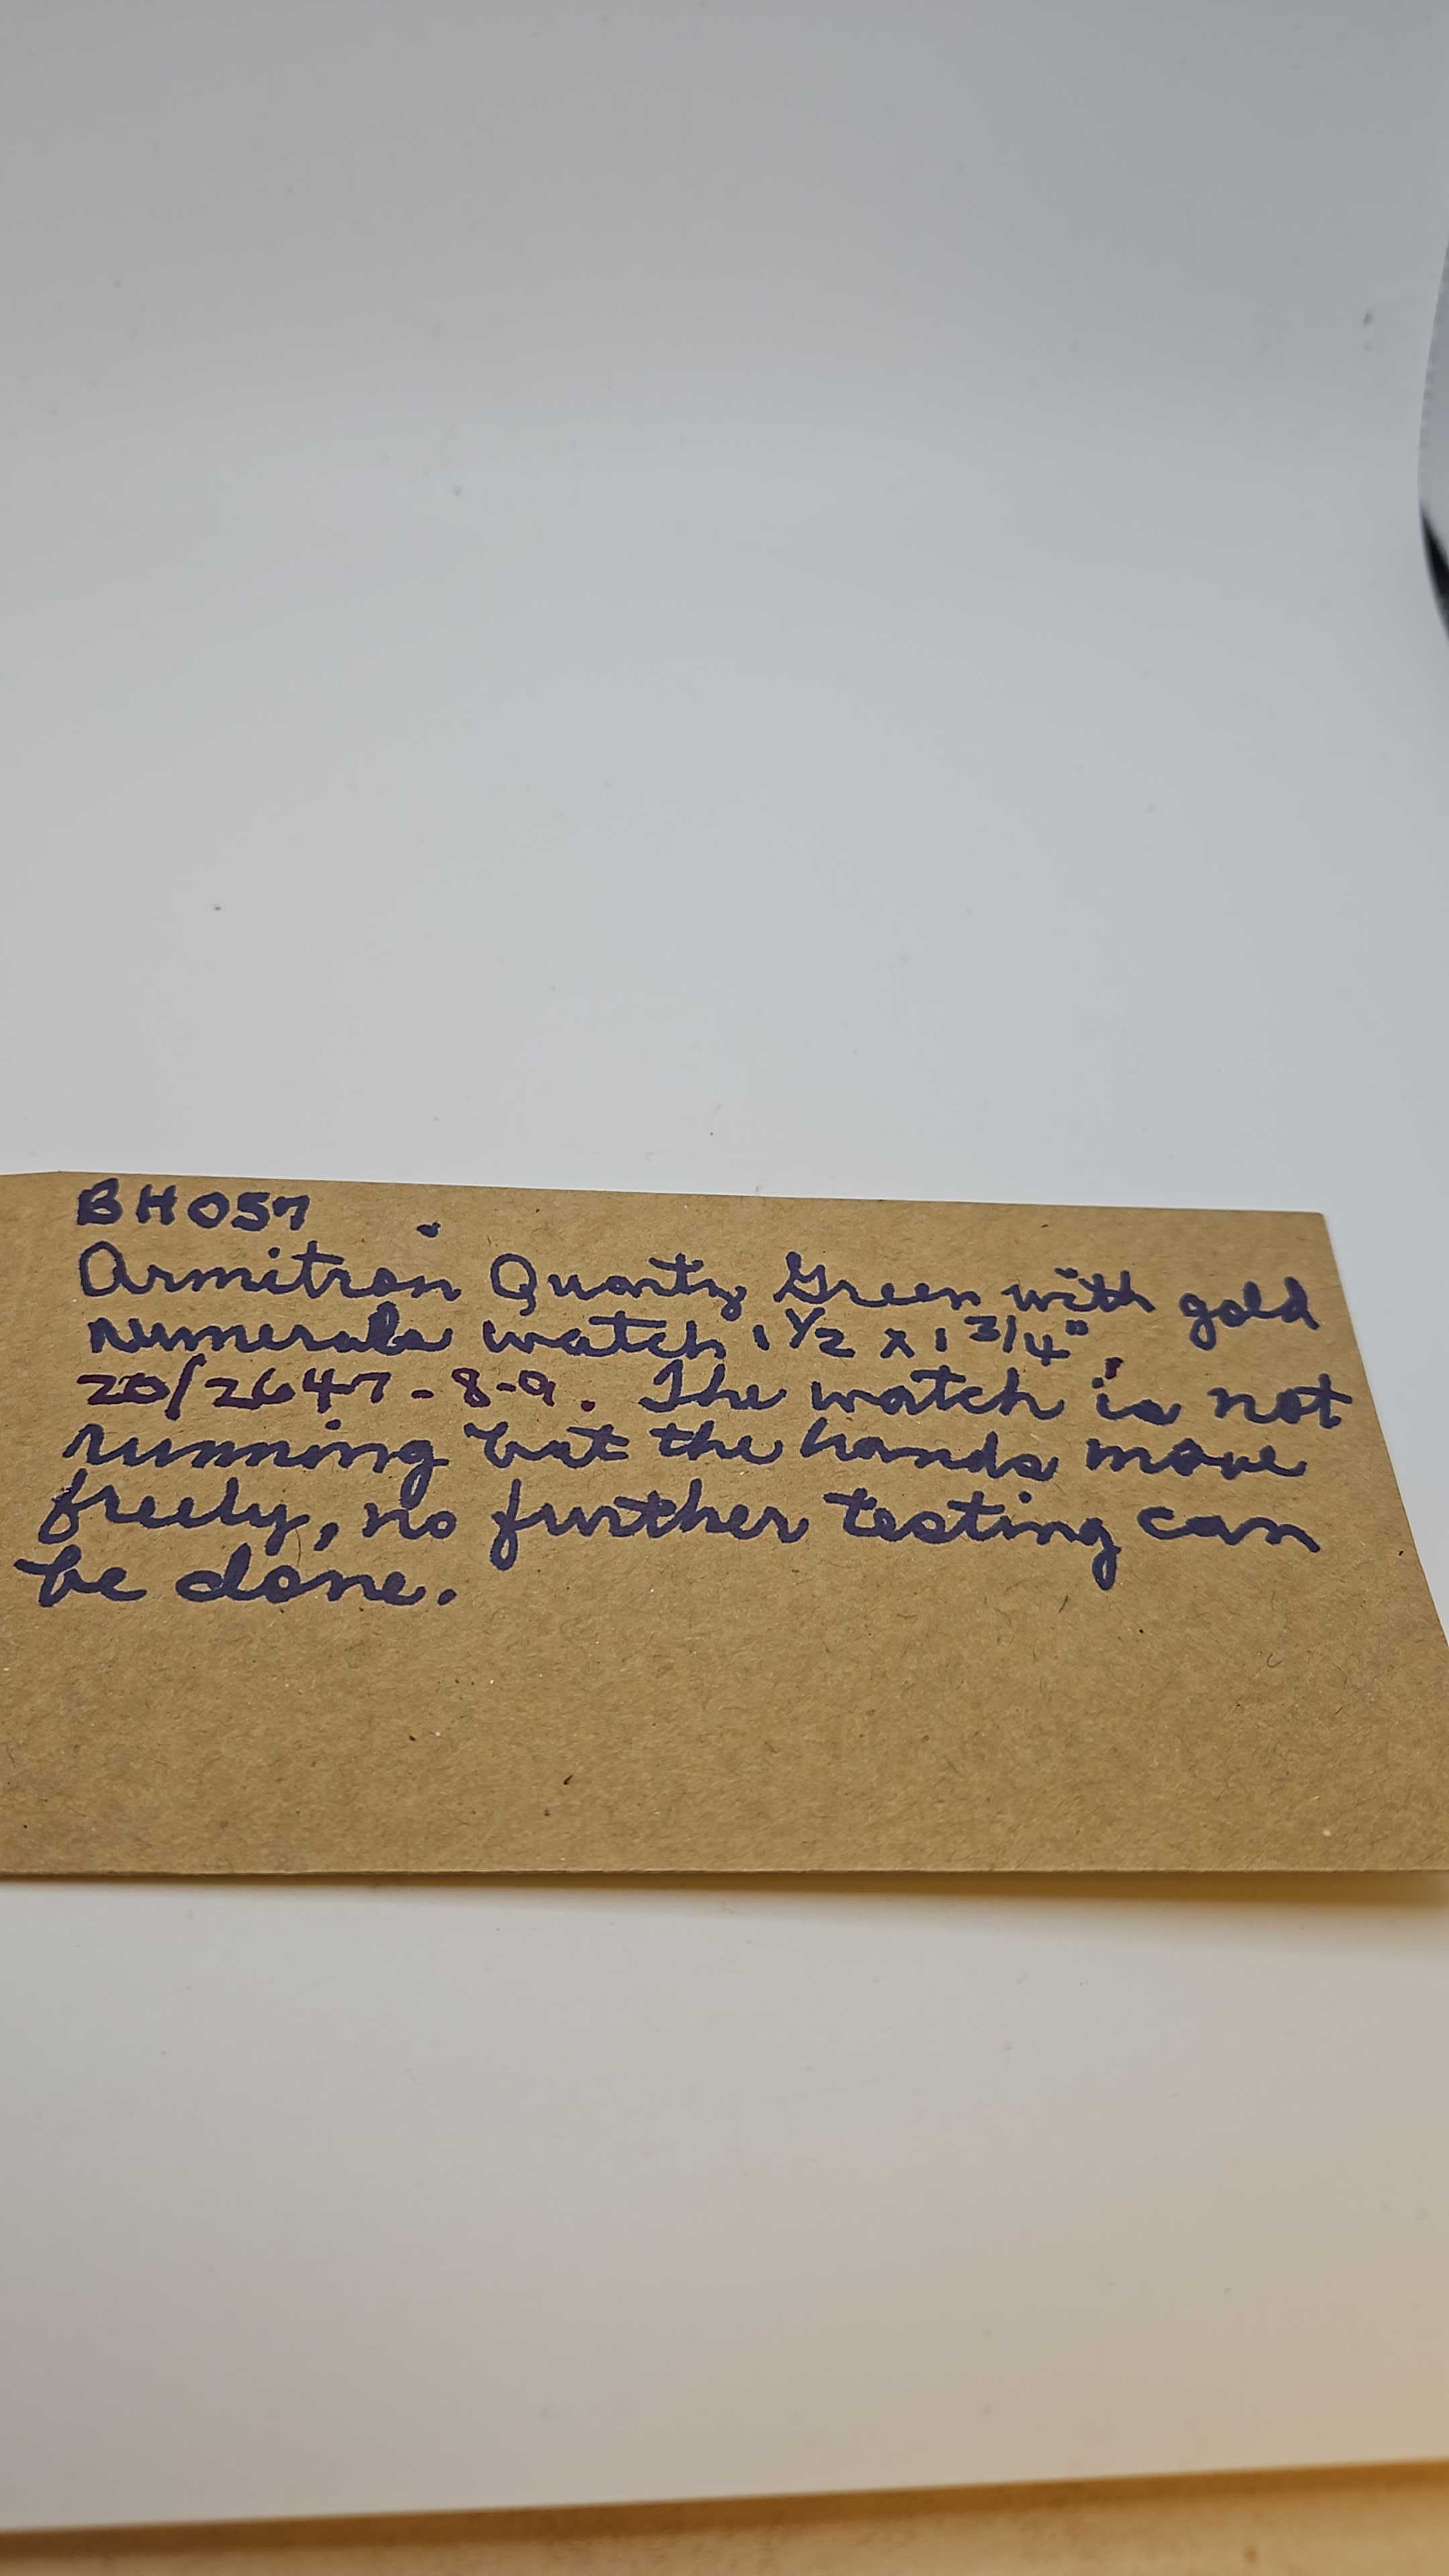 BH057
Armitron Quartz Green with gold
numerals watch 1 1/2 x 1 3/4",
20/2647-8-9. The watch is not
running but the hands move
freely, no further testing can
be done.